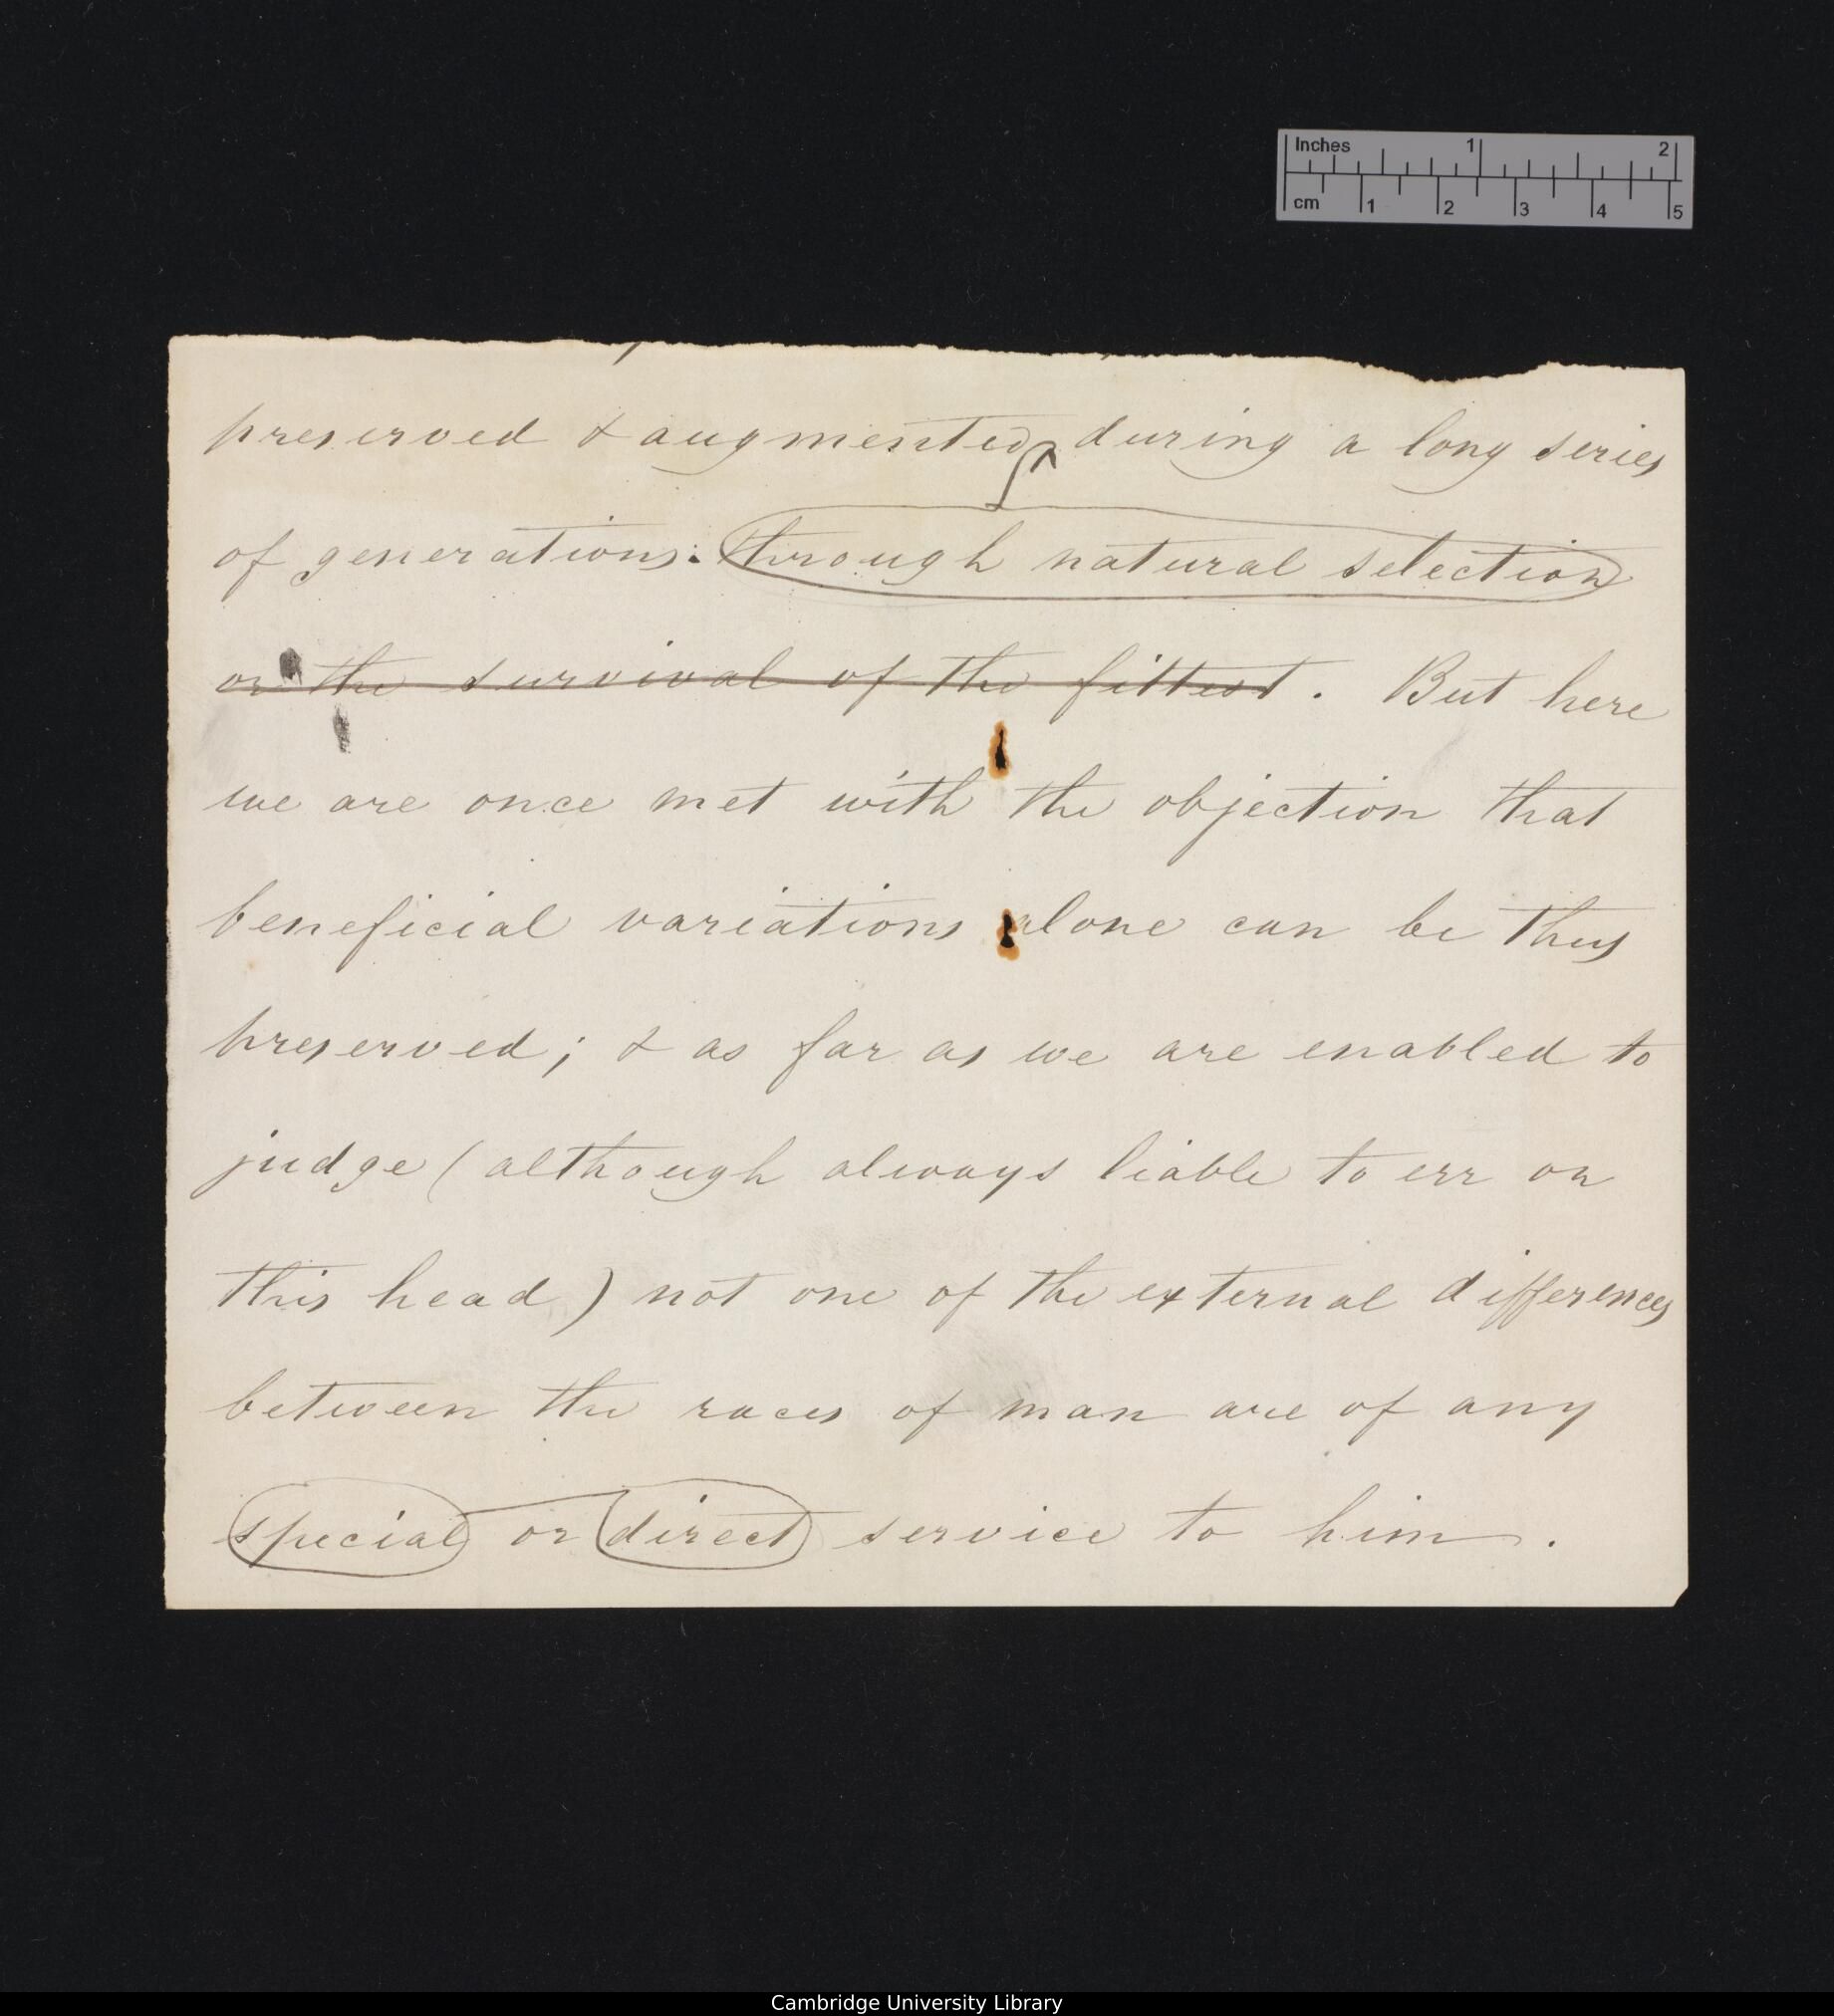 Inches 1 2
cm 1 2 3 4 5
preserved & augmented during a long series
of generations. through natural selection
or the survival of the fittest. But here
we are once met with the objection that
beneficial variations alone can be thus
preserved; & as far as we are enabled to
judge (although always liable to err on
this head) not one of the external differences
between the races of man are of any
special or direct service to him.
Cambridge University Library